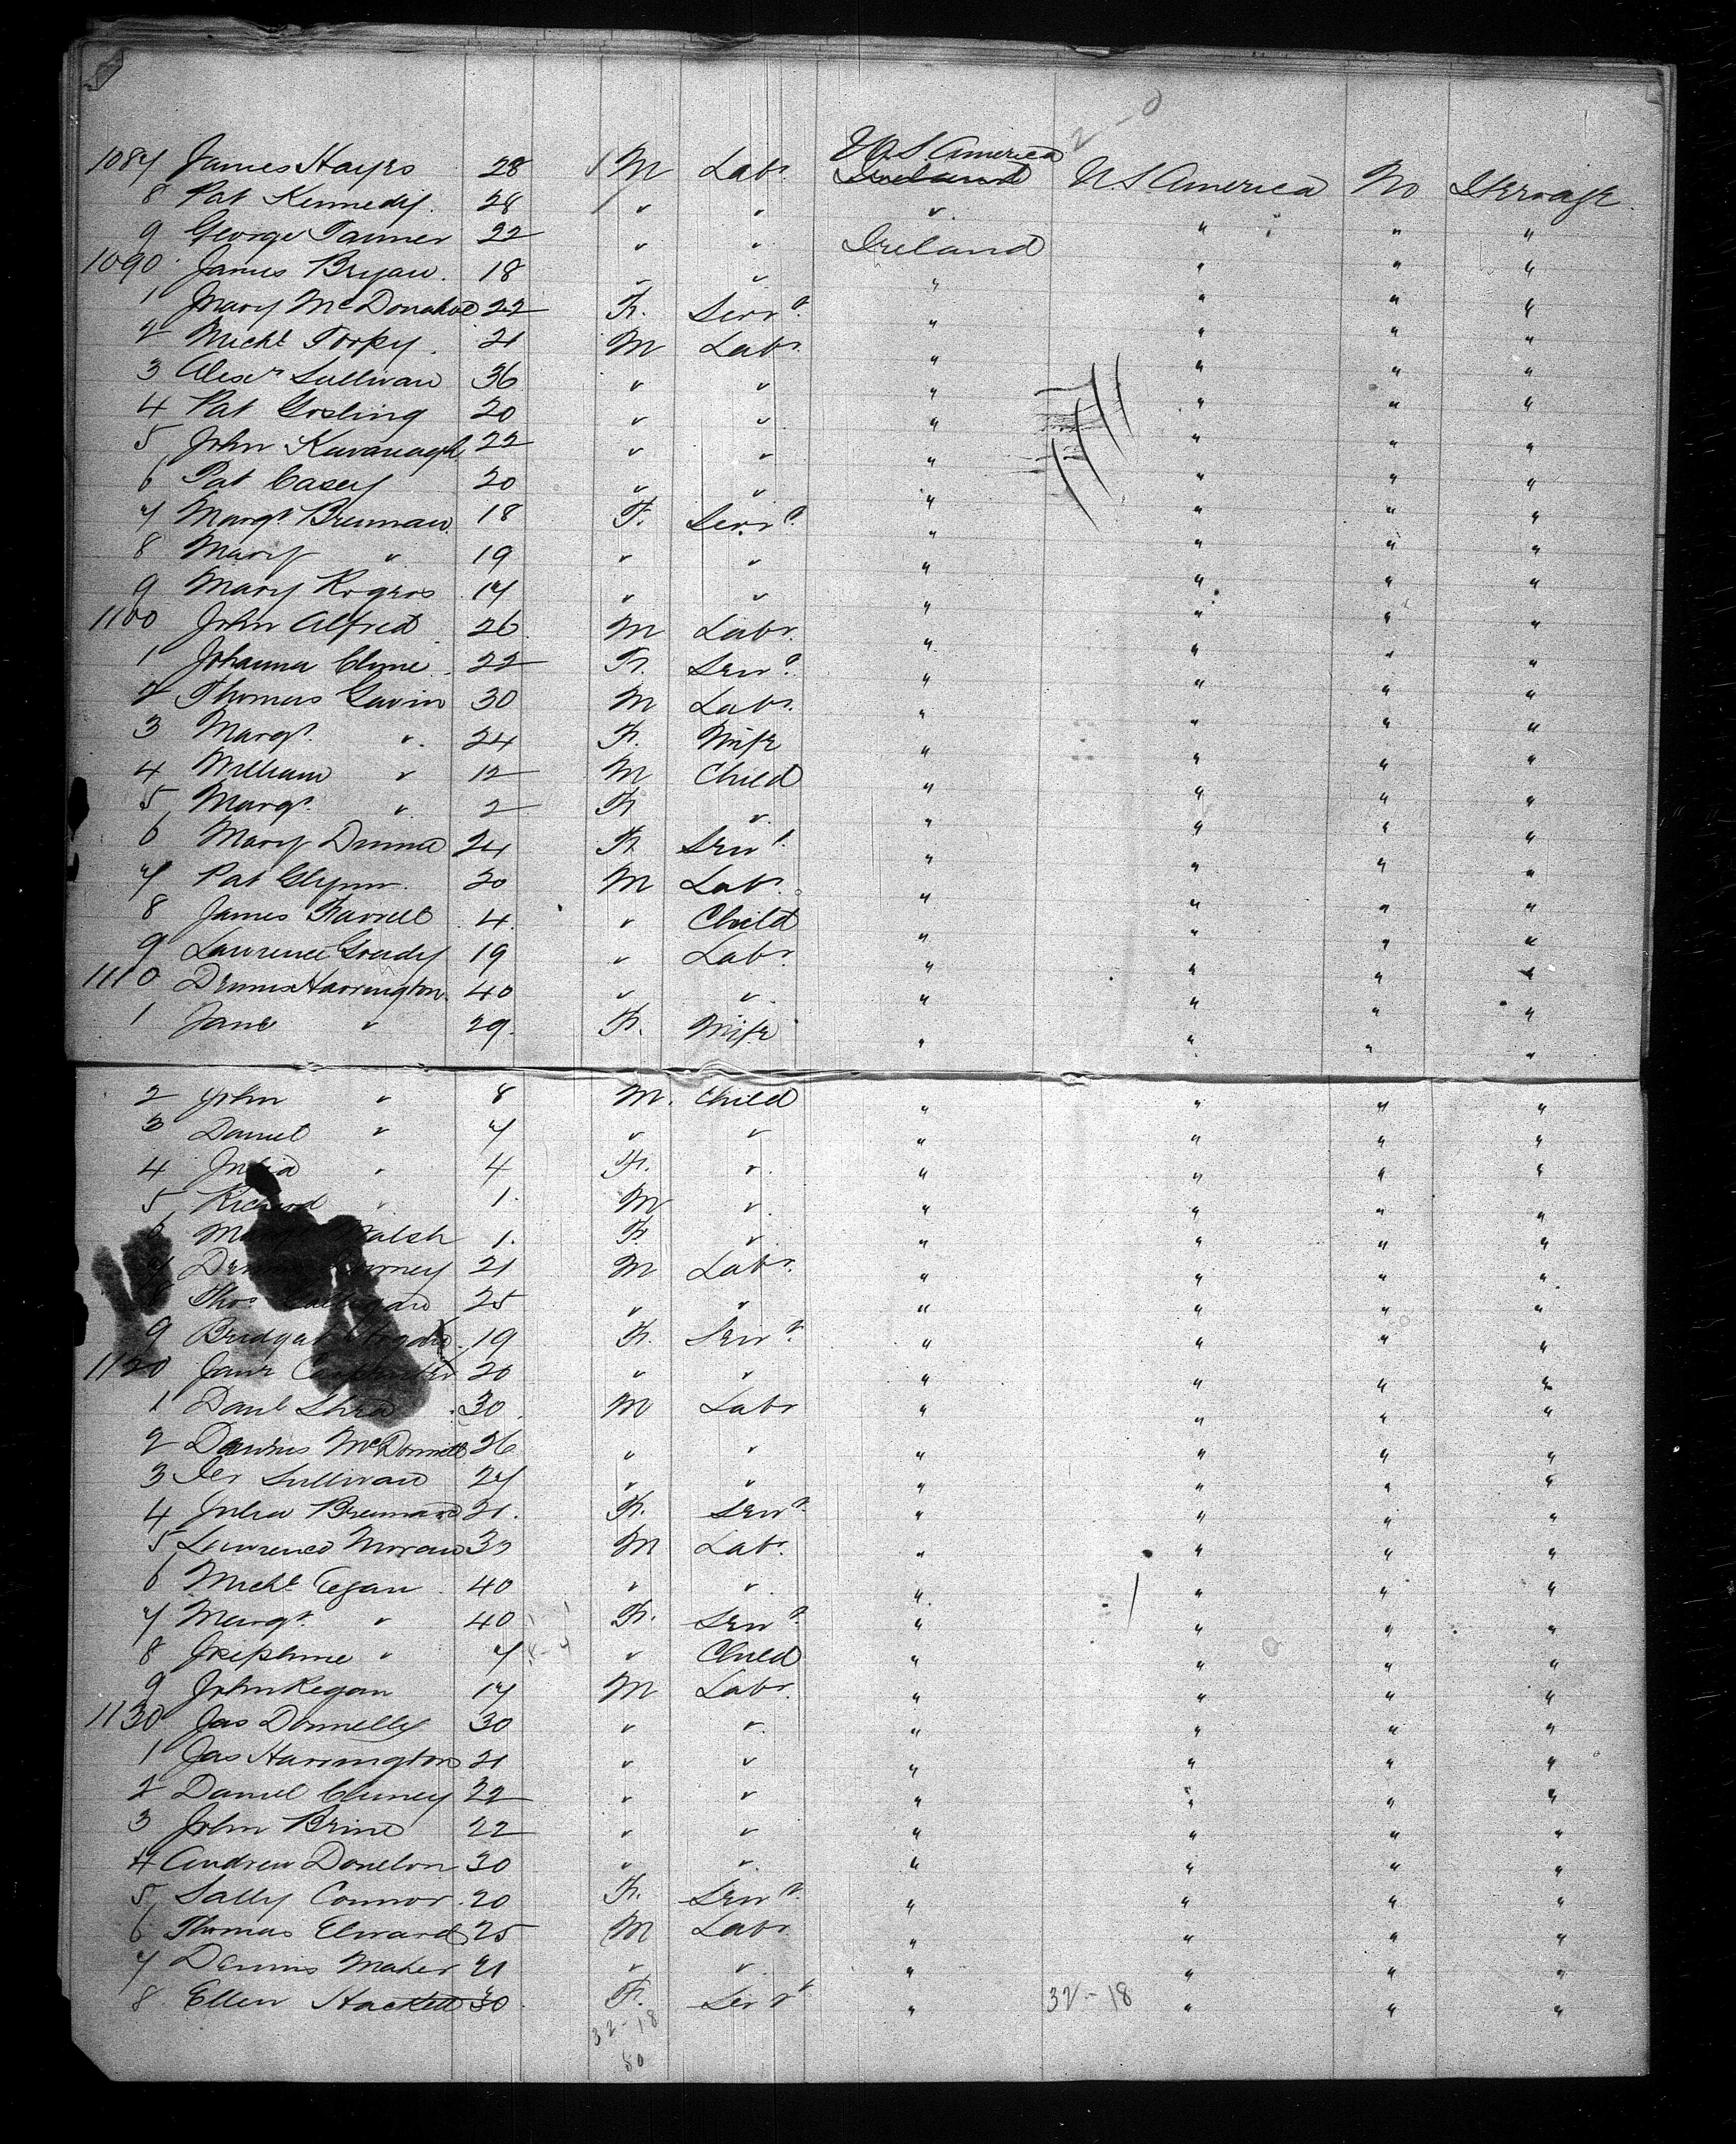 2-0
1087 James Hayes 28 1 M Labr. U S America Ireland U S America No Steerage
8 Pat Kennedy 28 " " " " " "
9 George Tanner 22 " " Ireland " " "
1090 James Bryan 18 " " " " " "
1 Mary McDonahoe 22 F. Servt. " " " "
2 Michl Torpy 21 M Labr. " " " "
3 Alexr Sullivan 36 " " " " " "
4 Pat Gosling 20 " " " " " "
5 John Kavanagh 22 " " " " " "
6 Pat Casey 20 " " " " " "
7 Margt Brennan 18 F. Servt. " " " "
8 Mary " 19 " " " " " "
9 Mary Rogers 17 " " " " " "
1100 John Alfred 26 M Labr. " " " "
1 Johanna Clune 22 F. Servt. " " " "
2 Thomas Gavin 30 M Labr. " " " "
3 Margt. " 24 F. Wife " " " "
4 William " 12 M Child " " " "
5 Margt. " 2 F " " " " "
6 Mary Dunne 24 F. Servt. " " " "
7 Pat Glynn 20 M Labr. " " " "
8 James Farrell 4 " Child " " " "
9 Lawrence Grady 19 " Labr. " " " "
1110 Dennis Harrington 40 " " " " " "
1 Jane " 29. F. Wife " " " "
2 John " 8 M. Child " " " "
3 Daniel " 7 " " " " " "
4 Julia " 4 F. " " " " "
5 Richard " 1. M " " " " "
6 Margt Walsh 1. F. " " " " "
7 21 M Labr. " " " "
8 Thos 25 " " " " " "
9 Bridget 19 F. Servt. " " " "
1120 Jane Carpenter 20 " " " " " "
1 Danl Shea 30. M Labr " " " "
2 McDonnell 26 " " " " " "
3 Jer Sullivan 27 " " " " " "
4 Julia Brennan 21. F. Servt. " " " "
5 Lawrence Moran 30 M Labr. " " " "
6 Michl Egan 40 " " " " " "
7 Margt. " 40 F. Servt. " " " "
8 Josephine " 7 " Child " " " "
9 John Regan 17 M Labr. " " " "
1130 Jas Donnelly 30 " " " " " "
1 Jas Harrington 21 " " " " " "
2 Daniel Cluney 22 " " " " " "
3 John Brine 22 " " " " " "
4 Andrew Donelon 30 " " " " " "
5 Sally Connor 20 F. Servt. " " " "
6 Thomas Elward 25 M Labr " " " "
7 Dennis Maher 21 " " " " " "
8. Ellen Hackett 30. F. Servt " 32-18 " " "
32-18
50